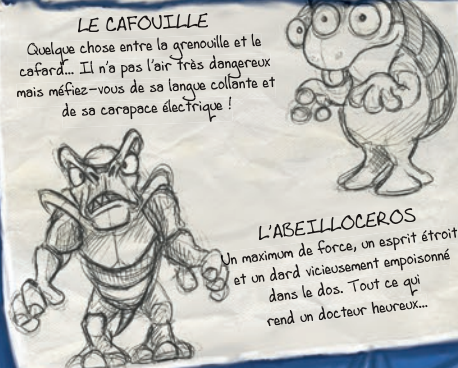 LE CAFOUILLE
Quelque chose entre la grenouille et le
cafard... Il n'a pas l'air très dangereux
mais méfiez-vous de sa langue collante et
de sa carapace électrique !
L'ABEILLOCEROS
Un maximum de force, un esprit étroit
et un dard vicieusement empoisonné
dans le dos. Tout ce qui
rend un docteur heureux...